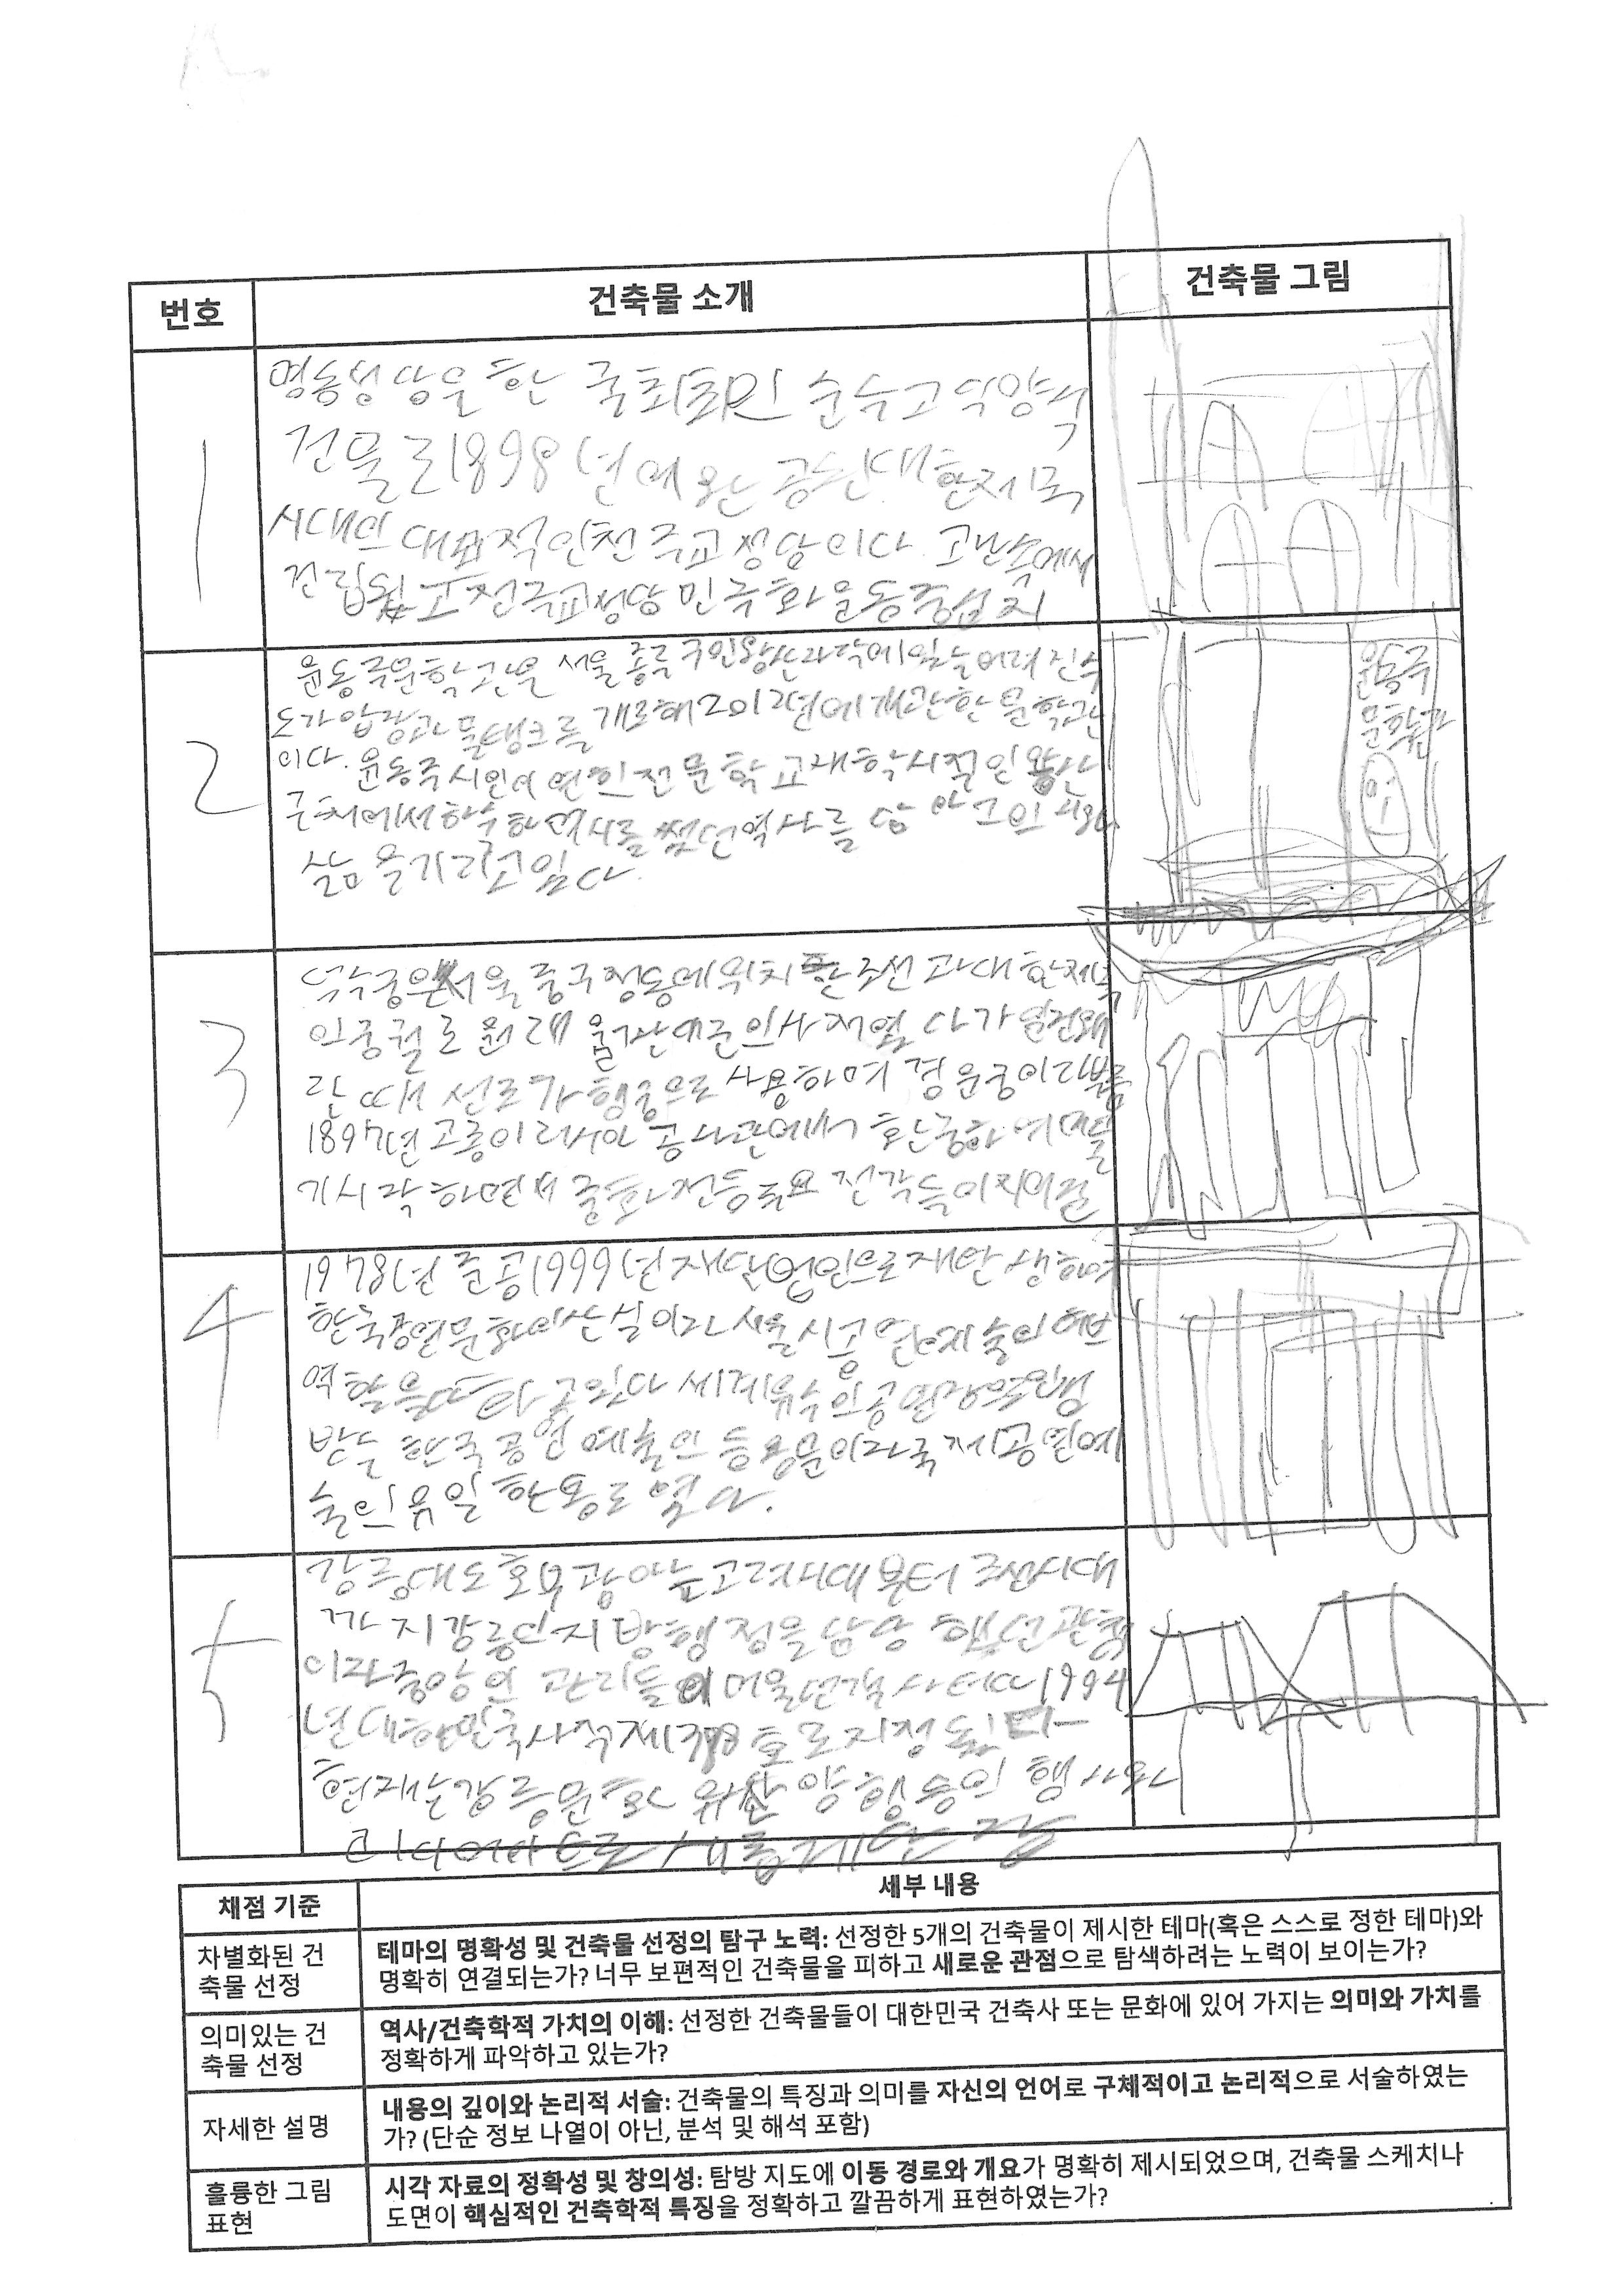 번호 건축물 소개 건축물 그림
1
명동성당은 한 국최초의 순수고딕양식
건물로 1898년에 완공된 대한제국
시대의 대표적인 천주교성당이다. 고난속에서
건립됬고 천주교성당 민주화운동중심지
2
윤동주문학관은 서울 종로구 인왕산자락에있는 버려진 수
도가압장과 물탱크를 개조해 2012년에 개관한 문학관
이다. 윤동주시인이 연희전문학교재학시절 인왕산
근처에서 하숙하며 시를 썼던 역사를 담아 그의 시와
삶을 기리고있다.
윤동주
문학관
3
덕수궁은 서울 중구 정동에 위치한 조선과 대한제국
의 궁궐로 원래 월산대군의 사저였다가 임진왜
란 때 선조가 행궁으로 사용하며 경운궁이라부름
1897년 고종이 러시아 공사관에서 환궁하여 머물
기시작하면서 중화전등 주요 전각들이지어짐
4
1978년 준공 1999년 재단법인으로 재탄생하여
한국공연문화의 산실이자 서울시 공연예술의 허브
역할을 하고있다 세계유수의 공연장으로
받는 한국공연예술의 등용문이자 국제공연예
술의 유일한 통로였다.
5
강릉대도호부관아는 고려시대부터 조선시대
까지 강릉의 지방행정을 담당했던 관청
이자 중앙의 관리들이 머물던 객사터다 1994
년 대한민국사적 제388호로지정됬다
현재는 강릉문화유산 야행등의 행사가
채점 기준 세부 내용
차별화된 건
축물 선정
테마의 명확성 및 건축물 선정의 탐구 노력: 선정한 5개의 건축물이 제시한 테마(혹은 스스로 정한 테마)와
명확히 연결되는가? 너무 보편적인 건축물을 피하고 새로운 관점으로 탐색하려는 노력이 보이는가?
의미있는 건
축물 선정
역사/건축학적 가치의 이해: 선정한 건축물들이 대한민국 건축사 또는 문화에 있어 가지는 의미와 가치를
정확하게 파악하고 있는가?
자세한 설명
내용의 깊이와 논리적 서술: 건축물의 특징과 의미를 자신의 언어로 구체적이고 논리적으로 서술하였는
가? (단순 정보 나열이 아닌, 분석 및 해석 포함)
훌륭한 그림
표현
시각 자료의 정확성 및 창의성: 탐방 지도에 이동 경로와 개요가 명확히 제시되었으며, 건축물 스케치나
도면이 핵심적인 건축학적 특징을 정확하고 깔끔하게 표현하였는가?